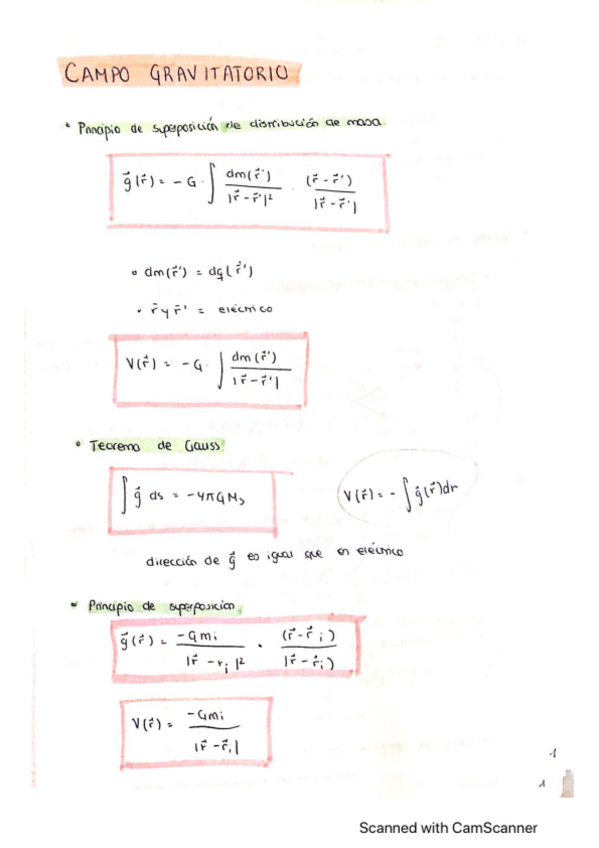 CAMPO GRAVITATORIO
• Principio de superposición de distribución de masa.
g⃗(r⃗) = - G · ∫ dm(r⃗')/|r⃗ - r⃗'|² · (r⃗ - r⃗')/|r⃗ - r⃗'|
• dm(r⃗') = dq(r⃗')
• r⃗ y r⃗' = eléctrico
V(r⃗) = - G · ∫ dm(r⃗')/|r⃗ - r⃗'|
• Teorema de Gauss
∫ g⃗ ds = -4πGM
V(r⃗) = - ∫ g⃗(r⃗)dr
dirección de g⃗ es igual que en eléctrico
• Principio de superposicion
g⃗(r⃗) = -Gmi/|r⃗ - ri|² · (r⃗ - r⃗i)/|r⃗ - r⃗i)
V(r⃗) = -Gmi/|r⃗ - r⃗i|
1
1
Scanned with CamScanner